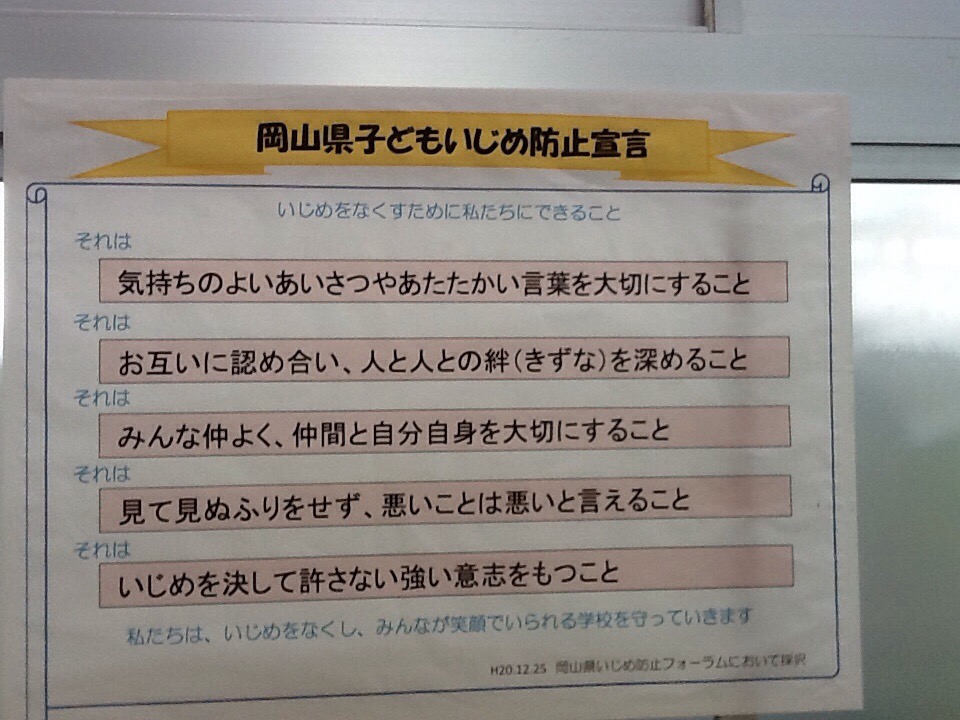 岡山県子どもいじめ防止宣言
いじめをなくすために私たちにできること
それは
気持ちのよいあいさつやあたたかい言葉を大切にすること
それは
お互いに認め合い、人と人との絆(きずな)を深めること
それは
みんな仲よく、仲間と自分自身を大切にすること
それは
見て見ぬふりをせず、悪いことは悪いと言えること
それは
いじめを決して許さない強い意志をもつこと
私たちは、いじめをなくし、みんなが笑顔でいられる学校を守っていきます
H20.12.25 岡山県いじめ防止フォーラムにおいて採択